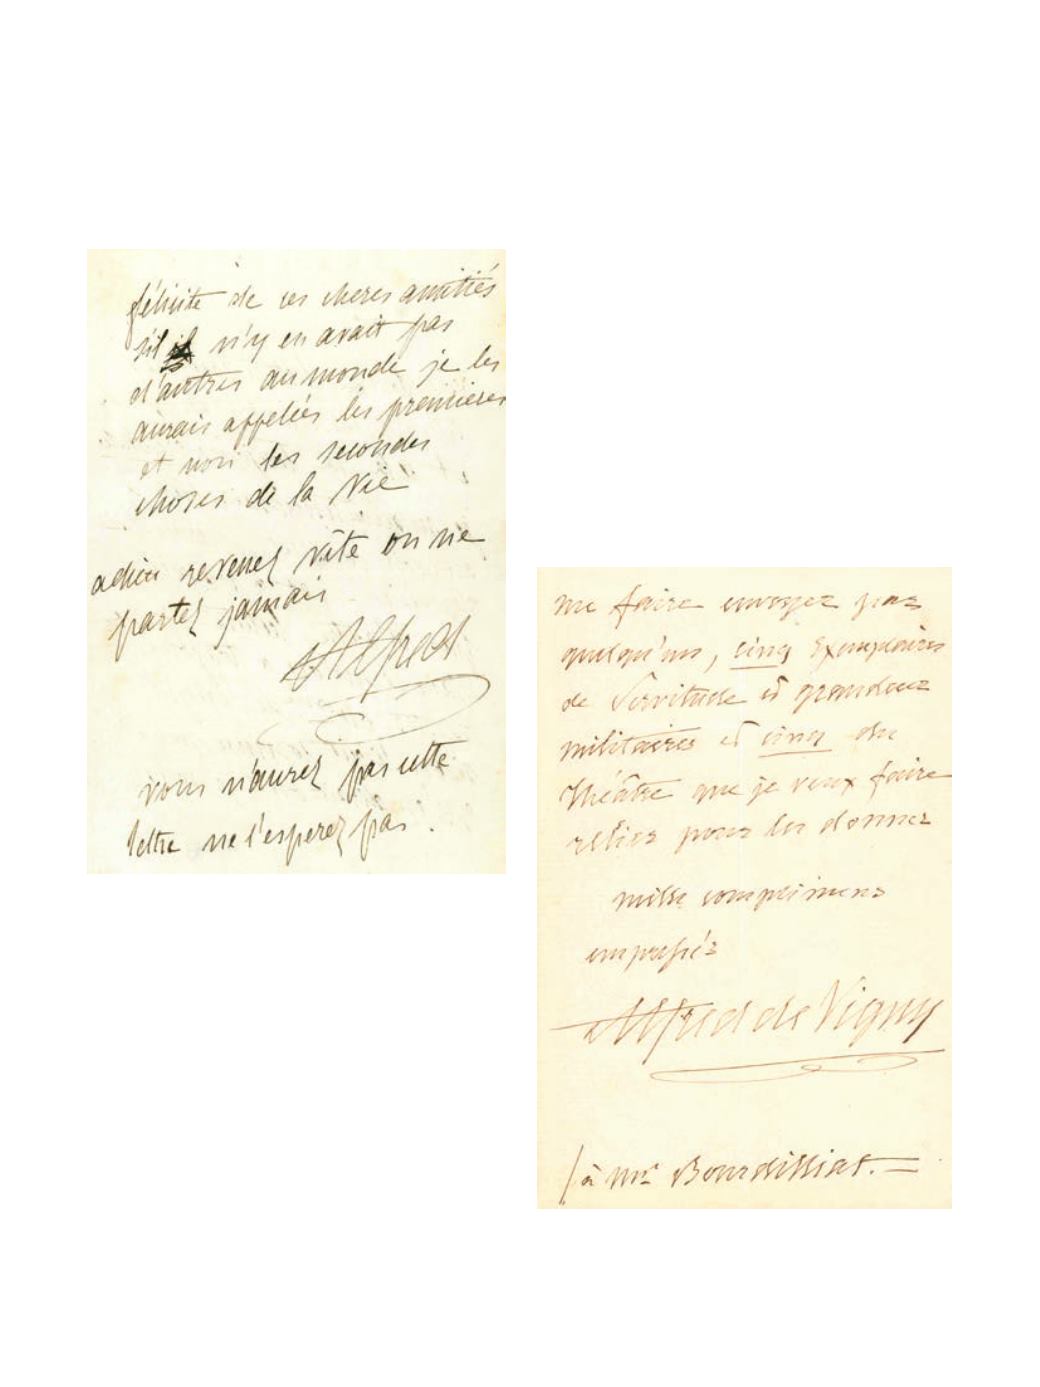 félicité de ces cheres amitiés
s'il n'y en avait pas
d'autres au monde je les
aurais appelées les premieres
et non les secondes
choses de la Vie
adieu revenez vite ou ne
partez jamais
Alfred
vous n'aurez pas cette
lettre ne l'esperez pas.
me faire envoyer par
quelqu'un, cinq Exemplaires
de Servitude et grandeur
militaires et cinq du
Théâtre que je veux faire
relier pour les donner
mille complimens
empressés
Alfred de Vigny
à Mr Bourdilliat.